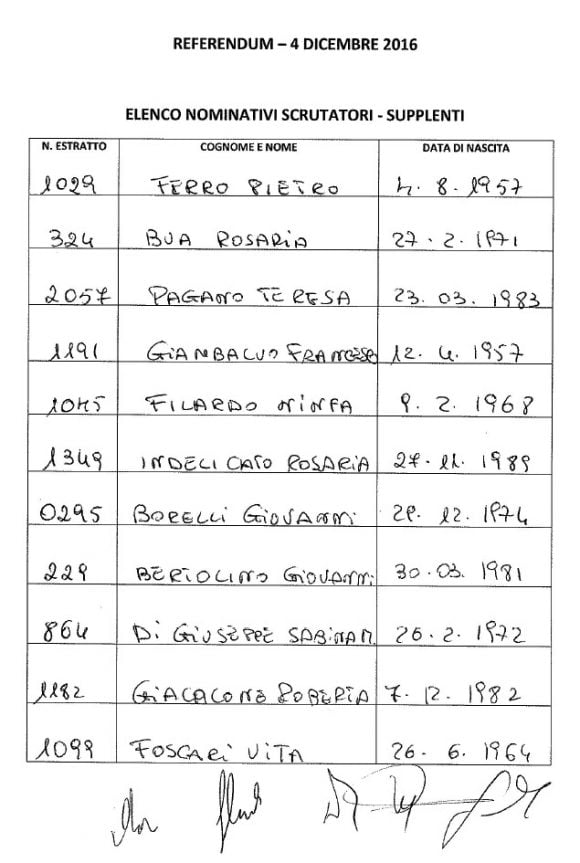 REFERENDUM – 4 DICEMBRE 2016
ELENCO NOMINATIVI SCRUTATORI - SUPPLENTI
N. ESTRATTO COGNOME E NOME DATA DI NASCITA
1029 FERRO PIETRO 4. 8. 1957
324 BUA ROSARIA 27. 2. 1971
2057 PAGANO TERESA 23. 03. 1983
1191 GIAMBALVO 12. 4. 1957
1045 FILARDO NINFA 9. 2. 1968
1349 INDELICATO ROSARIA 27. 11. 1989
0295 BORELLI GIOVANNI 29. 12. 1974
229 BERTOLINO GIOVANNI 30.03. 1981
864 DI GIUSEPPE SABINA M. 26. 2. 1972
1182 GIACALONE ROBERTA 7. 12. 1982
1099 FOSCARI VITA 26. 6. 1964